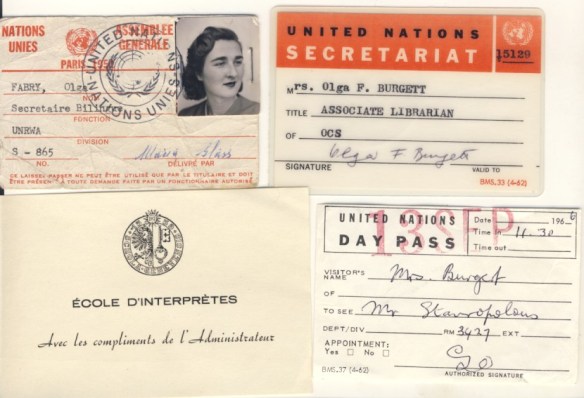 NATIONS UNIES
ASSEMBLEE GENERALE
PARIS 195
UNITED NATIONS
NATIONS UNIES
FABRY, Olga
NOM
Secretaire Bilingue
FONCTION
UNRWA
DIVISION
S - 865
NO.
DÉLIVRÉ PAR
CE LAISSEZ-PASSER NE PEUT ÊTRE UTILISÉ QUE PAR LE TITULAIRE ET DOIT
ÊTRE PRÉSENTÉ À TOUTE DEMANDE FAITE PAR UN FONCTIONNAIRE AUTORISÉ
UNITED NATIONS
SECRETARIAT
15129
Mrs. Olga F. BURGETT
TITLE ASSOCIATE LIBRARIAN
OF OCS
Olga F Burgett
SIGNATURE VALID TO
BMS.33 (4-62)
ÉCOLE D'INTERPRÈTES
Avec les compliments de l'Administrateur
UNITED NATIONS
DAY PASS
13 SEP
Date 196 6
Time in 11.30
Time out
VISITOR'S NAME Mrs. Burget
OF
TO SEE Mr Stavropolous
DEPT/DIV RM 3427 EXT
APPOINTMENT:
Yes No
AUTHORIZED SIGNATURE
BMS.37 (4-62)